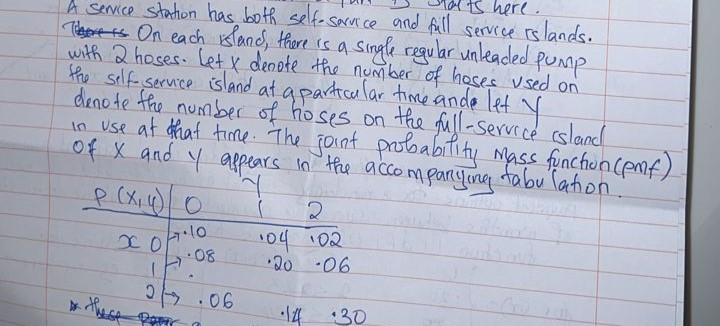 starts here.
A service station has both self-service and full service islands.
On each island, there is a single regular unleaded pump
with 2 hoses. Let X denote the number of hoses used on
the self-service island at a particular time and let Y
denote the number of hoses on the full-service island
in use at that time. The joint probability mass function (pmf)
of X and Y appears in the accompanying tabulation.
y
P(x,y) 0 1 2
x 0 .10 .04 .02
1 .08 .20 .06
2 .06 .14 .30